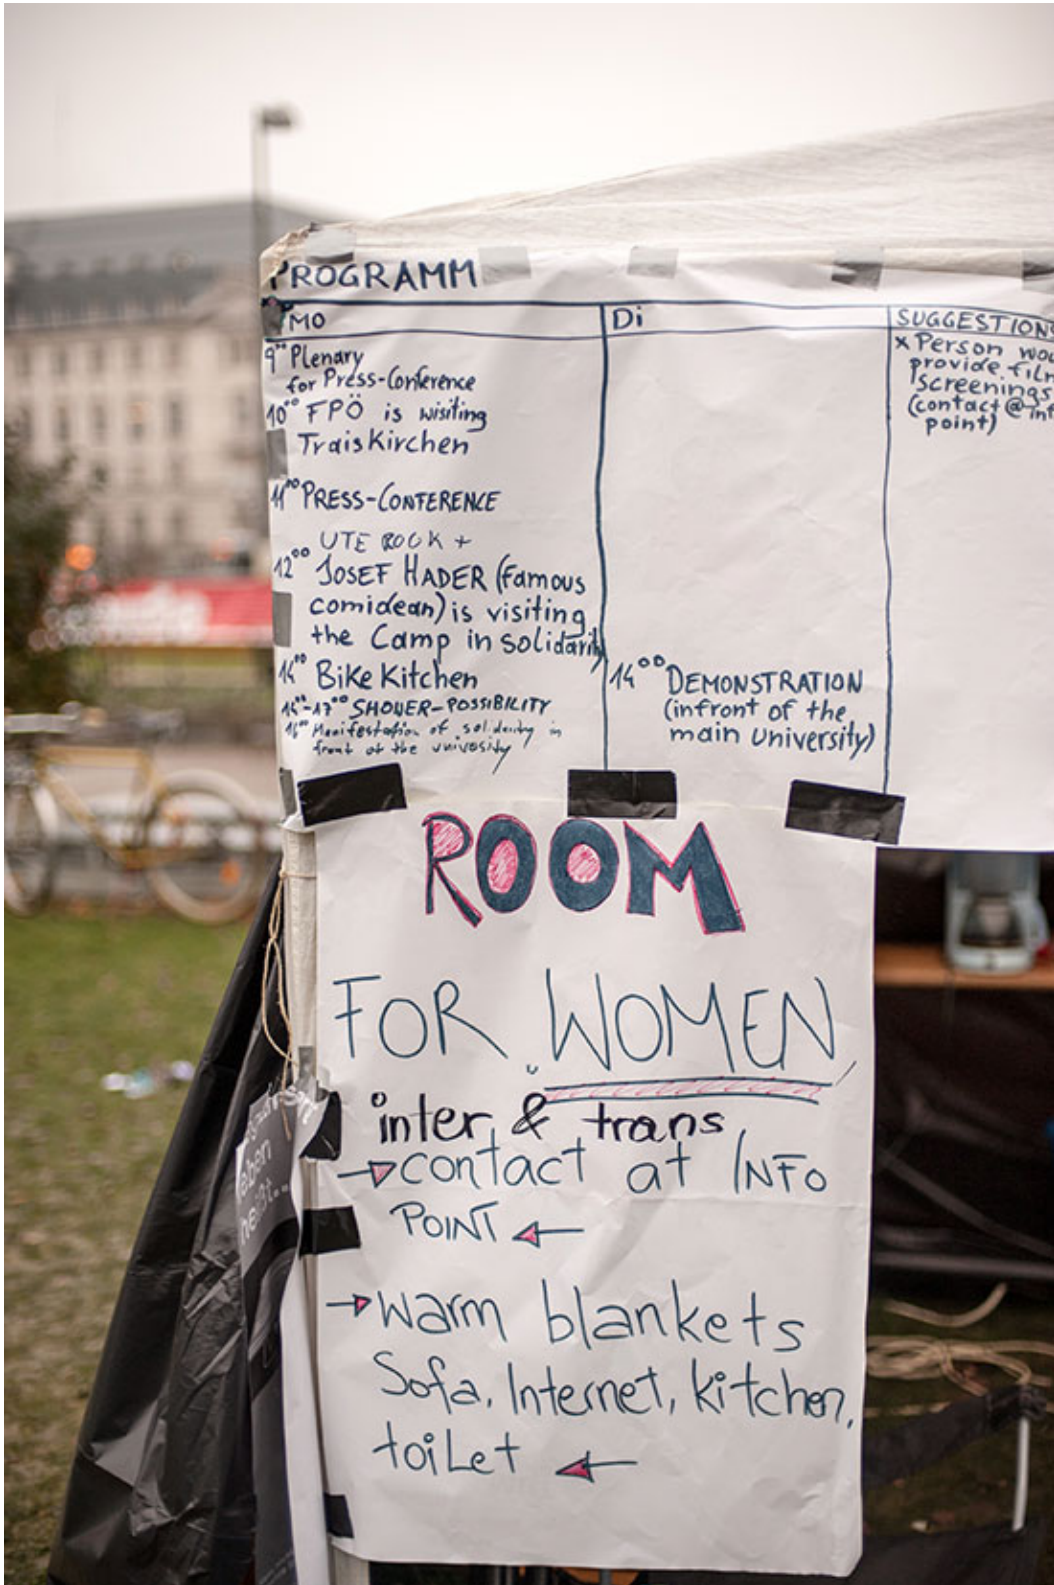 PROGRAMM
MO
9⁰⁰ Plenary
for Press-Conference
10⁰⁰ FPÖ is wisiting
Traiskirchen
11⁰⁰ PRESS-CONFERENCE
UTE BOCK +
12⁰⁰ JOSEF HADER (famous
comidean) is visiting
the Camp in solidarity
14⁰⁰ Bike Kitchen
15⁰⁰-17⁰⁰ SHOWER-POSSIBILITY
16⁰⁰ Manifestation of solidarity in
front of the univosity
Di
14⁰⁰ DEMONSTRATION
(infront of the
main university)
SUGGESTION
x Person wou
provide film
screenings
(contact @ inf
point)
ROOM
FOR WOMEN,
inter & trans
contact at INFO
POINT
warm blankets
Sofa, Internet, kitchen,
toilet
eben
heißt...